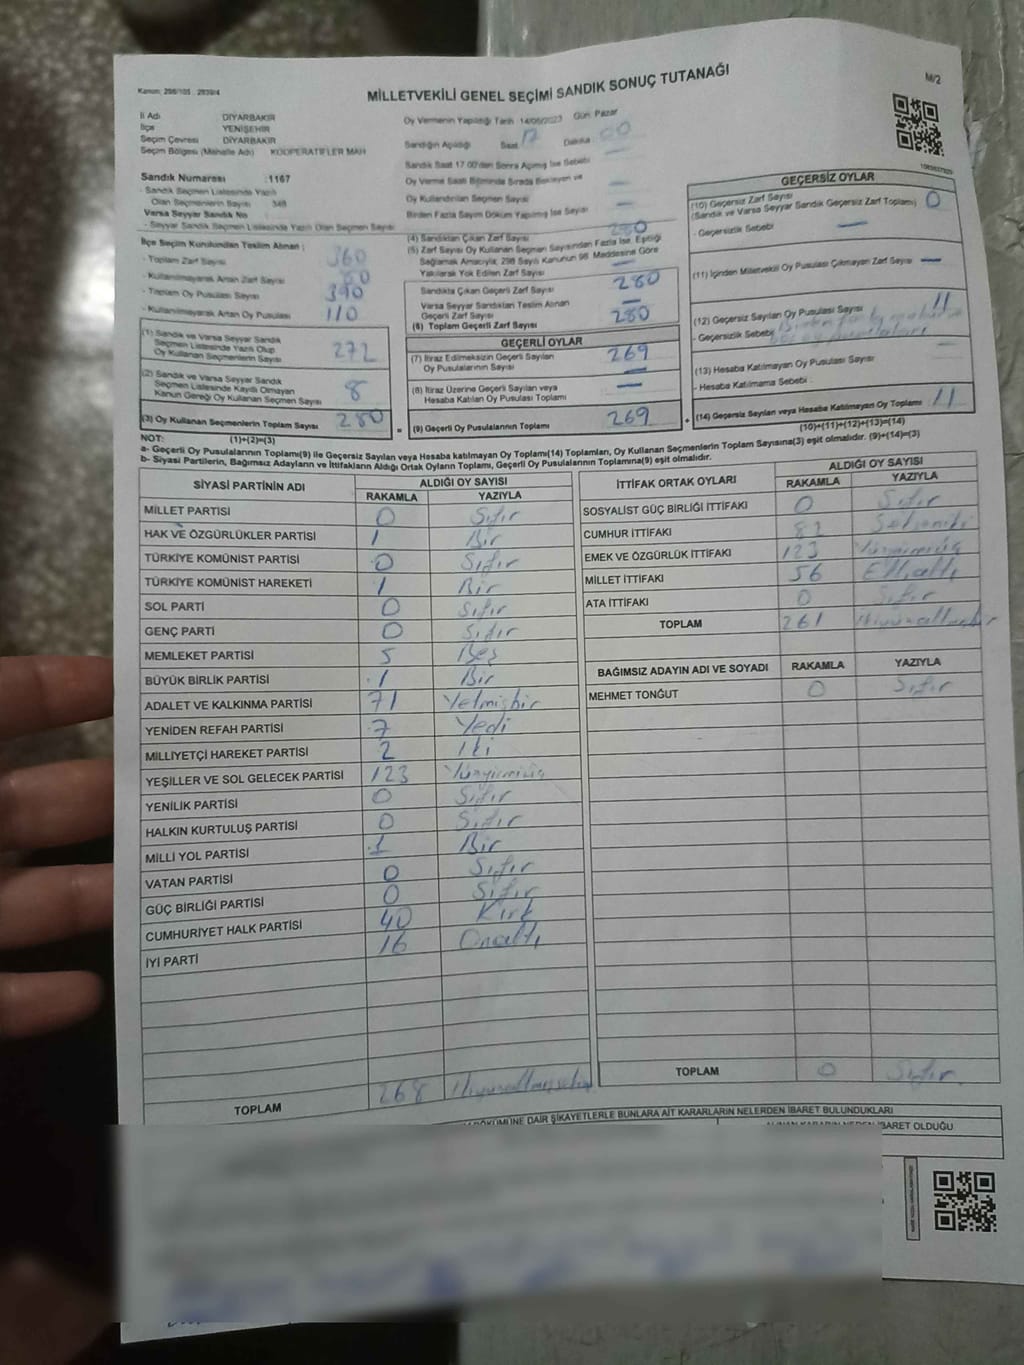 Kanun: 298/105 , 2839/4
MİLLETVEKİLİ GENEL SEÇİMİ SANDIK SONUÇ TUTANAĞI
M/2
İl Adı DİYARBAKIR
İlçe YENİŞEHİR
Seçim Çevresi DİYARBAKIR
Seçim Bölgesi (Mahalle Adı) KOOPERATİFLER MAH
Sandık Numarası :1167
- Sandık Seçmen Listesinde Yazılı
Olan Seçmenlerin Sayısı 348
Varsa Seyyar Sandık No
- Seyyar Sandık Seçmen Listesinde Yazılı Olan Seçmen Sayısı
İlçe Seçim Kurulundan Teslim Alınan ;
- Toplam Zarf Sayısı 360
- Kullanılmayarak Artan Zarf Sayısı 80
- Toplam Oy Pusulası Sayısı 390
- Kullanılmayarak Artan Oy Pusulası 110
(1) Sandık ve Varsa Seyyar Sandık
Seçmen Listesinde Yazılı Olup
Oy Kullanan Seçmenlerin Sayısı 272
(2) Sandık ve Varsa Seyyar Sandık
Seçmen Listesinde Kayıtlı Olmayan
Kanun Gereği Oy Kullanan Seçmen Sayısı 8
(3) Oy Kullanan Seçmenlerin Toplam Sayısı 280
Oy Vermenin Yapıldığı Tarih 14/05/2023 Gün Pazar
Sandığın Açıldığı Saat 17 Dakika 00
Sandık Saat 17.00'den Sonra Açılmış İse Sebebi
Oy Verme Saati Bitiminde Sırada Bekleyen ve
Oy Kullandırılan Seçmen Sayısı
Birden Fazla Sayım Döküm Yapılmış İse Sayısı
(4) Sandıktan Çıkan Zarf Sayısı 280
(5) Zarf Sayısı Oy Kullanan Seçmen Sayısından Fazla İse, Eşitliği
Sağlamak Amacıyla; 298 Sayılı Kanunun 98. Maddesine Göre
Yakılarak Yok Edilen Zarf Sayısı
Sandıkta Çıkan Geçerli Zarf Sayısı 280
Varsa Seyyar Sandıktan Teslim Alınan
Geçerli Zarf Sayısı
(6) Toplam Geçerli Zarf Sayısı 280
GEÇERLİ OYLAR
(7) İtiraz Edilmeksizin Geçerli Sayılan
Oy Pusulalarının Sayısı 269
(8) İtiraz Üzerine Geçerli Sayılan veya
Hesaba Katılan Oy Pusulası Toplamı
= (9) Geçerli Oy Pusulalarının Toplamı 269 +
GEÇERSİZ OYLAR
(10) Geçersiz Zarf Sayısı
(Sandık ve Varsa Seyyar Sandık Geçersiz Zarf Toplamı) 0
- Geçersizlik Sebebi
(11) İçinden Milletvekili Oy Pusulası Çıkmayan Zarf Sayısı
(12) Geçersiz Sayılan Oy Pusulası Sayısı 11
- Geçersizlik Sebebi Birden fazla
(13) Hesaba Katılmayan Oy Pusulası Sayısı
- Hesaba Katılmama Sebebi
(14) Geçersiz Sayılan veya Hesaba Katılmayan Oy Toplamı 11
NOT: (1)+(2)=(3)
(10)+(11)+(12)+(13)=(14)
a- Geçerli Oy Pusulalarının Toplamı(9) ile Geçersiz Sayılan veya Hesaba katılmayan Oy Toplamı(14) Toplamları, Oy Kullanan Seçmenlerin Toplam Sayısına(3) eşit olmalıdır. (9)+(14)=(3)
b- Siyasi Partilerin, Bağımsız Adayların ve İttifakların Aldığı Ortak Oyların Toplamı, Geçerli Oy Pusulalarının Toplamına(9) eşit olmalıdır.
SİYASİ PARTİNİN ADI ALDIĞI OY SAYISI
RAKAMLA YAZIYLA
MİLLET PARTİSİ 0 Sıfır
HAK VE ÖZGÜRLÜKLER PARTİSİ 1 Bir
TÜRKİYE KOMÜNİST PARTİSİ 0 Sıfır
TÜRKİYE KOMÜNİST HAREKETİ 1 Bir
SOL PARTİ 0 Sıfır
GENÇ PARTİ 0 Sıfır
MEMLEKET PARTİSİ 5 Beş
BÜYÜK BİRLİK PARTİSİ 1 Bir
ADALET VE KALKINMA PARTİSİ 71 Yetmişbir
YENİDEN REFAH PARTİSİ 7 Yedi
MİLLİYETÇİ HAREKET PARTİSİ 2 İki
YEŞİLLER VE SOL GELECEK PARTİSİ 123 Yüzyirmiüç
YENİLİK PARTİSİ 0 Sıfır
HALKIN KURTULUŞ PARTİSİ 0 Sıfır
MİLLİ YOL PARTİSİ 1 Bir
VATAN PARTİSİ 0 Sıfır
GÜÇ BİRLİĞİ PARTİSİ 0 Sıfır
CUMHURİYET HALK PARTİSİ 40 Kırk
İYİ PARTİ 16 Onaltı
TOPLAM 268 İkiyüzaltmışsekiz
İTTİFAK ORTAK OYLARI ALDIĞI OY SAYISI
RAKAMLA YAZIYLA
SOSYALİST GÜÇ BİRLİĞİ İTTİFAKI 0 Sıfır
CUMHUR İTTİFAKI
EMEK VE ÖZGÜRLÜK İTTİFAKI 123 Yüzyirmiüç
MİLLET İTTİFAKI 56 Ellialtı
ATA İTTİFAKI 0 Sıfır
TOPLAM 261 İkiyüzaltmışbir
BAĞIMSIZ ADAYIN ADI VE SOYADI RAKAMLA YAZIYLA
MEHMET TONĞUT 0 Sıfır
TOPLAM 0 Sıfır
DÖKÜMÜNE DAİR ŞİKAYETLERLE BUNLARA AİT KARARLARIN NELERDEN İBARET BULUNDUKLARI
İBARET OLDUĞU